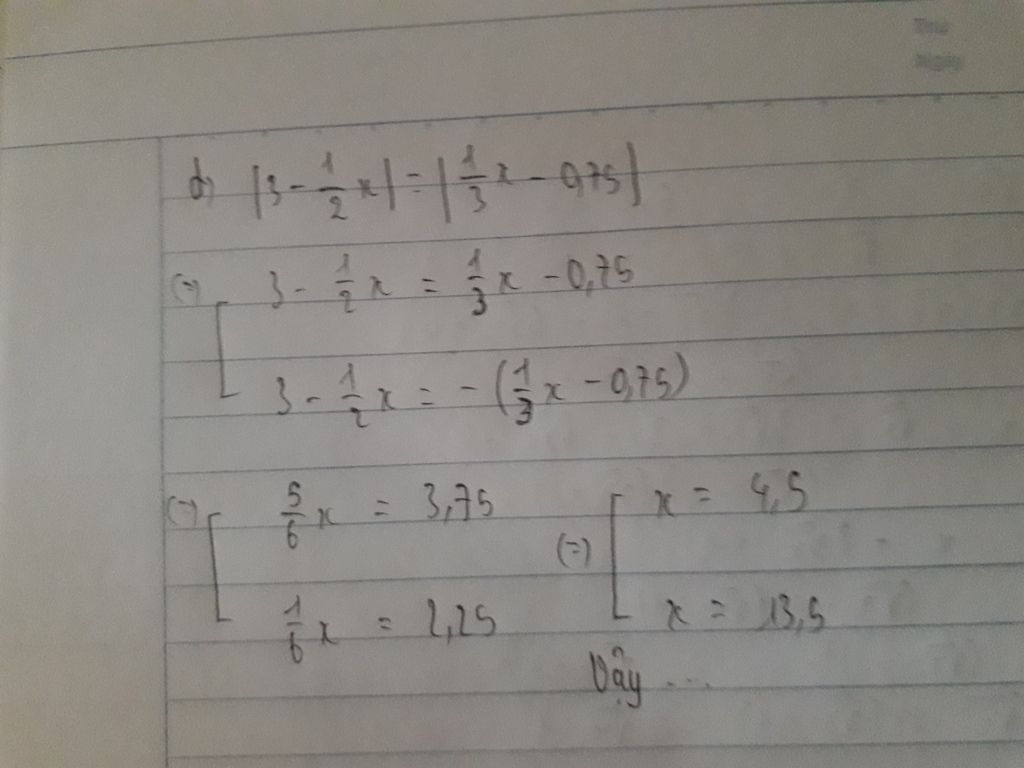 d, |3 - 1/2 x| = |1/3 x - 0,75|
(=) [ 3 - 1/2 x = 1/3 x - 0,75
3 - 1/2 x = - (1/3 x - 0,75)
(=) [ 5/6 x = 3,75 (=) [ x = 4,5
1/6 x = 2,25 x = 13,5
Vậy ....